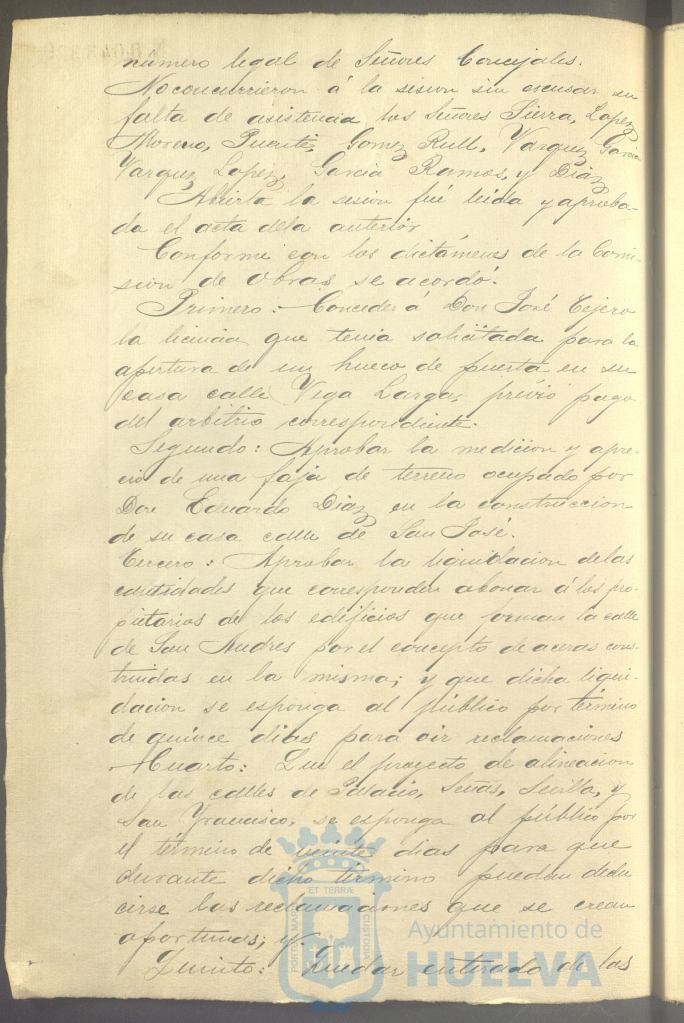 número legal de Señores Concejales.
No concurrieron á la sesion sin escusar su
falta de asistencia los Señores Sierra, Lopez
Moreno, Puente, Gomez Rull, Vazquez Garcia
Vazquez Lopez, Garcia Ramos, y Diaz
Abierta la sesion fué leida y aproba-
da el acta dela anterior
Conforme con los dictámenes de la Comi-
sion de obras se acordó.
Primero: Conceder á Don José Tejero
la licencia que tenia solicitada para la
apertura de un hueco de puerta en su
casa calle Vega Larga, prévio pago
del arbitrio correspondiente.
Segundo: Aprobar la medicion y apre-
cio de una faja de terreno ocupado por
Don Eduardo Diaz en la construccion
de su casa calle de San José.
Tercero: Aprobar la liquidacion delas
cantidades que corresponden abonar á los pro-
pietarios de los edificios que forman la calle
de San Andres por el concepto de aceras cons-
truidas en la misma; y que dicha liqui-
dacion se esponga al público por término
de quince dias para oir reclamaciones
Cuarto: Que el proyecto de alineacion
de las calles de Palacio, Señas, Sevilla, y
San Francisco, se esponga al público por
el término de veinte dias para que
durante dicho término puedan dedu
cirse las reclamaciones que se crean
oportunas; y
Quinto: Quedar enterado de las
ET TERRÆ
PORTUS MARIS
CUSTODIA
Ayuntamiento de
HUELVA